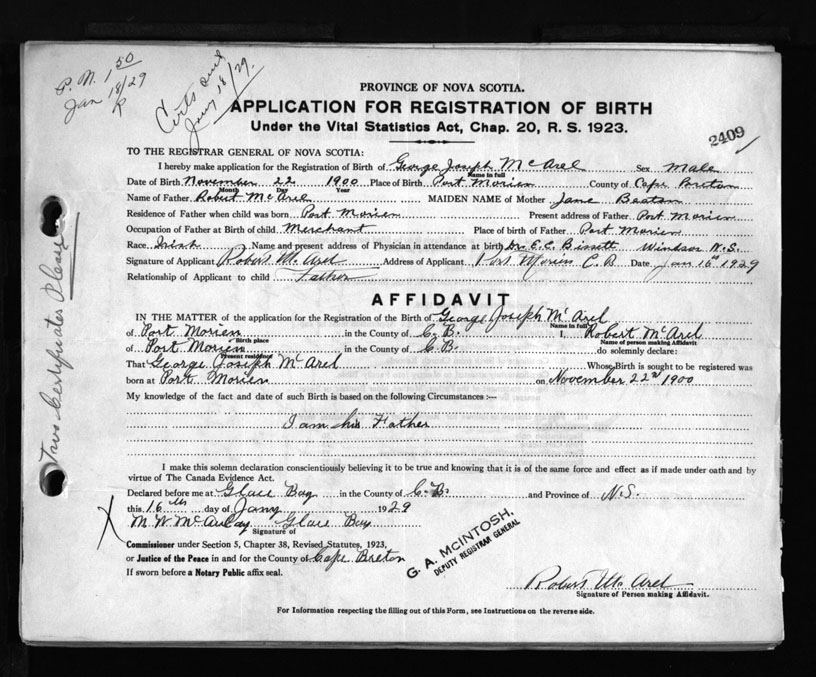 P. N. 1 50
Jan 18/29
Certs sent
Jany 18/29.
PROVINCE OF NOVA SCOTIA.
APPLICATION FOR REGISTRATION OF BIRTH
Under the Vital Statistics Act, Chap. 20, R. S. 1923.
2409
TO THE REGISTRAR GENERAL OF NOVA SCOTIA:
I hereby make application for the Registration of Birth of George Joseph McArel Sex Male
Name in full
Date of Birth November 22 1900 Place of Birth Port Morien County of Cape Breton
Month Day Year
Name of Father Robert McArel MAIDEN NAME of Mother Jane Beaton
Residence of Father when child was born Port Morien Present address of Father Port Morien
Occupation of Father at Birth of child Merchant Place of birth of Father Port Morien
Race Irish Name and present address of Physician in attendance at birth Dr E.C. Bissett Windsor N.S.
Signature of Applicant Robert McArel Address of Applicant Port Morien C.B Date Jan 16th 1929
Relationship of Applicant to child Father
AFFIDAVIT
IN THE MATTER of the application for the Registration of the Birth of George Joseph McArel
Name in full
of Port Morien in the County of C.B. I, Robert McArel
Birth place Name of person making Affidavit
of Port Morien in the County of C.B. do solemnly declare:
Present residence
That George Joseph McArel Whose Birth is sought to be registered was
born at Port Morien on November 22nd 1900
My knowledge of the fact and date of such Birth is based on the following Circumstances :—
I am his Father
I make this solemn declaration conscientiously believing it to be true and knowing that it is of the same force and effect as if made under oath and by
virtue of The Canada Evidence Act.
Declared before me at Glace Bay in the County of C.B. and Province of N.S.
this 16th day of Jany 1929
M. W. McAulay Glace Bay
Signature of
Commissioner under Section 5, Chapter 38, Revised Statutes, 1923,
or Justice of the Peace in and for the County of Cape Breton
If sworn before a Notary Public affix seal.
G. A. MCINTOSH,
DEPUTY REGISTRAR GENERAL
Robert McArel
Signature of Person making Affidavit.
For Information respecting the filling out of this Form, see Instructions on the reverse side.
Two Certificates Please